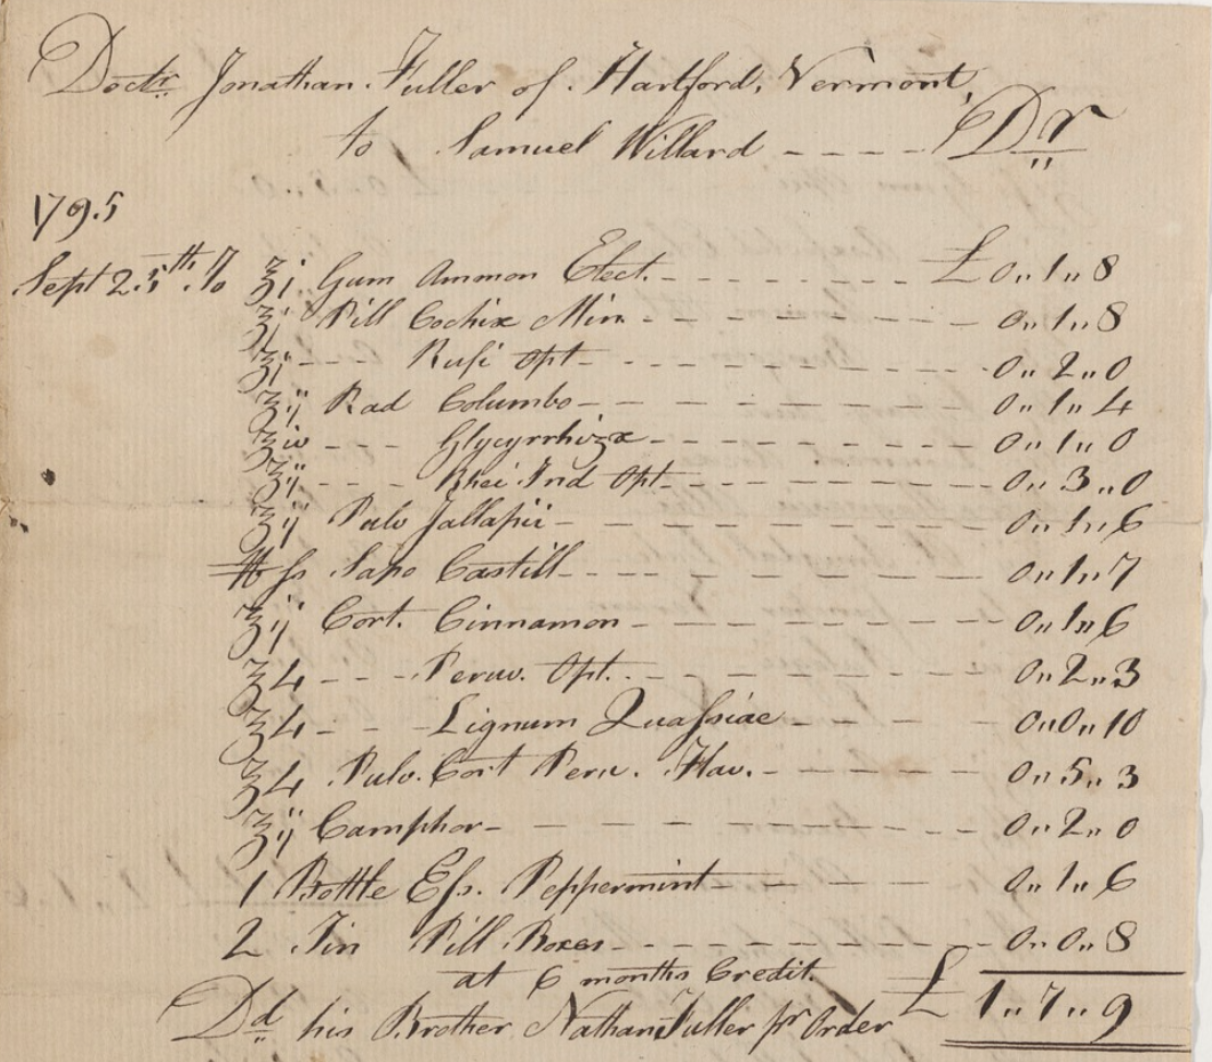 Doctr. Jonathan Fuller of Hartford, Vermont,
to Samuel Willard - - - - - Dr
1795
Sept 25th To ℥j Gum Ammon Elect. - - - - - - - £ 0,, 1,, 8
℥j Pill Cochiæ Min - - - - - - - - 0,, 1,, 8
℥j - - - Rufi opt - - - - - - - - 0,, 2,, 0
℥ij Rad Columbo - - - - - - - - 0,, 1,, 4
℥iv - - - Glycyrrhizæ - - - - - - - - 0,, 1,, 0
℥ij - - - - Rhei Ind Opt - - - - - - - - 0,, 3,, 0
℥ij Pulv Jallapii - - - - - - - - 0,, 1,, 6
℔ ſs Sapo Castill - - - - - - - - 0,, 1,, 7
℥ij Cort. Cinnamon - - - - - - - - 0,, 1,, 6
℥4 - - - Peruv. Opt. - - - - - - - - 0,, 2,, 3
℥4 - - - Lignum Quaſsiae - - - - - - 0,, 0,, 10
℥4 Pulv. Cort Peru. Flav. - - - - - - 0,, 5,, 3
℥ij Camphor - - - - - - - - - 0,, 2,, 0
1 Bottle Eſs. Peppermint - - - - - - 0,, 1,, 6
2 Tin Pill Boxes - - - - - - - - - 0,, 0,, 8
at 6 months Credit.
Dd his Brother Nathan Fuller pr Order £ 1,, 7,, 9